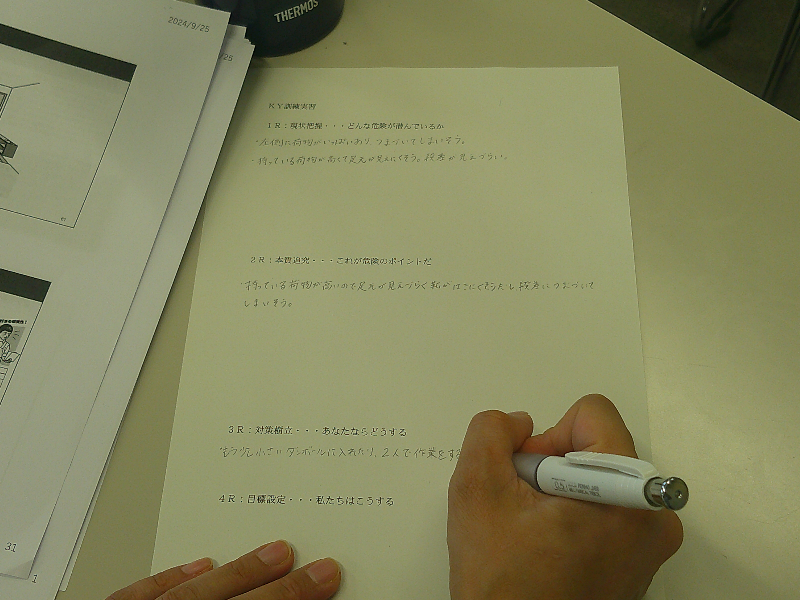 THERMOS
2024/9/25
/25
ＫＹ訓練実習
１Ｒ：現状把握・・・どんな危険が潜んでいるか
・左側に荷物がいっぱいあり つまづいてしまいそう。
・持っている荷物が高くて足元が見えにくそう。段差が見えづらい。
２Ｒ：本質追究・・・これが危険のポイントだ
・持っている荷物が高いので足元が見えづらく転がはこにぐそうたし 段差につまづいて
しまいそう。
３Ｒ：対策樹立・・・あなたならどうする
・もう少し小さいダンボールに入れたり、2人で作業をする
４Ｒ：目標設定・・・私たちはこうする
0.5
31
1